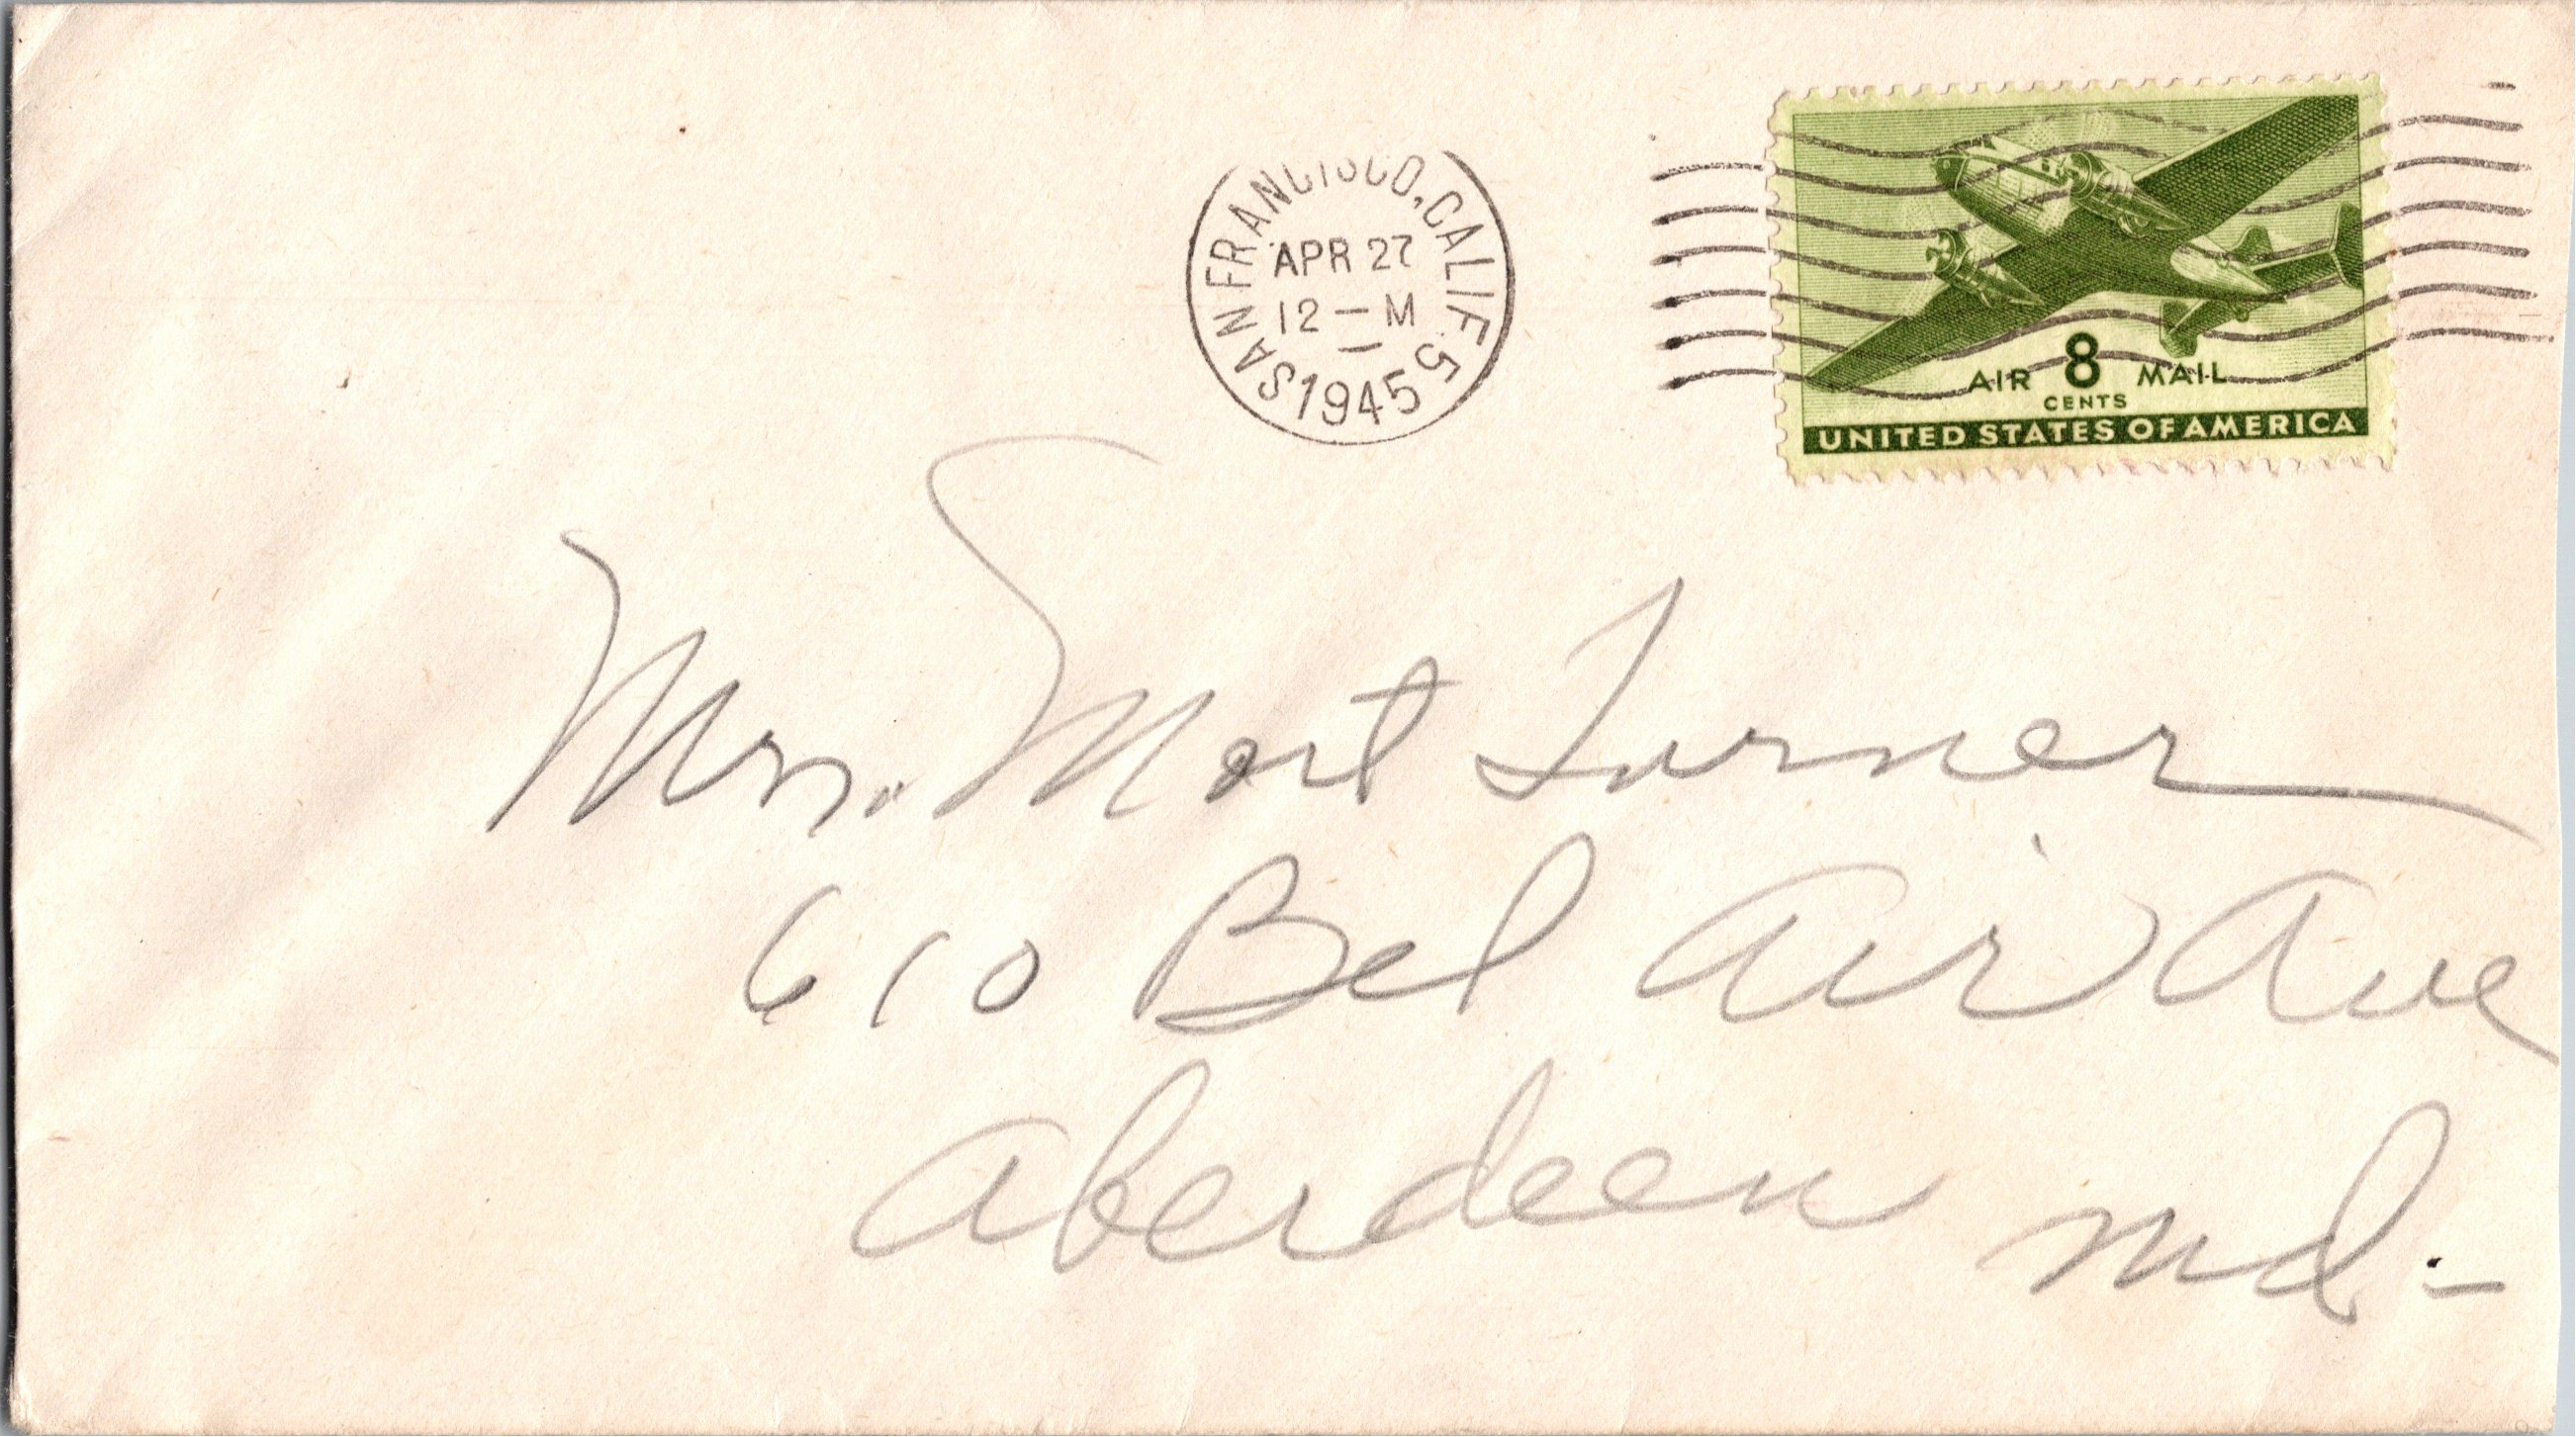 SAN FRANCISCO, CALIF. 5
APR 27
12 – M
1945
AIR 8 MAIL
CENTS
UNITED STATES OF AMERICA
Mrs. Mort Turner
610 Bel Air Ave
Aberdeen Md-